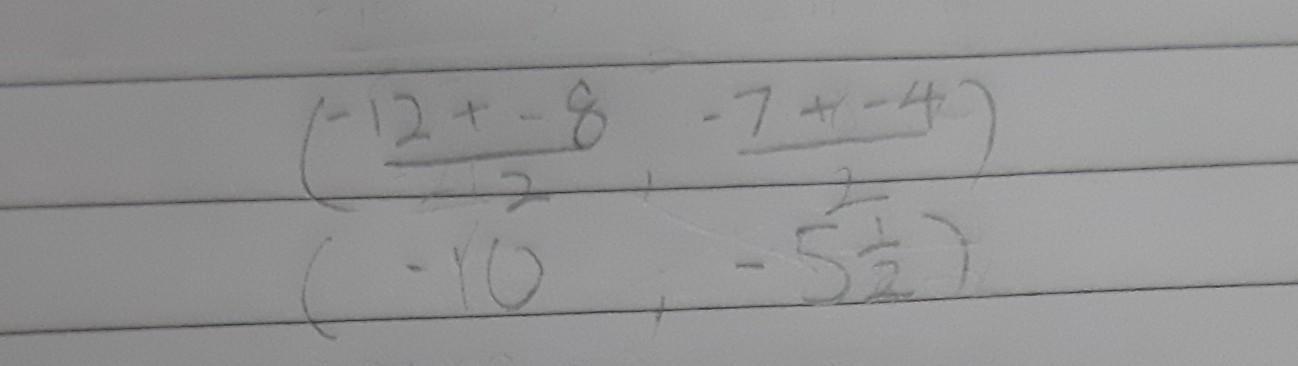 (-12 + -8 / 2 , -7 + -4 / 2)
(-10 , -5 1/2)